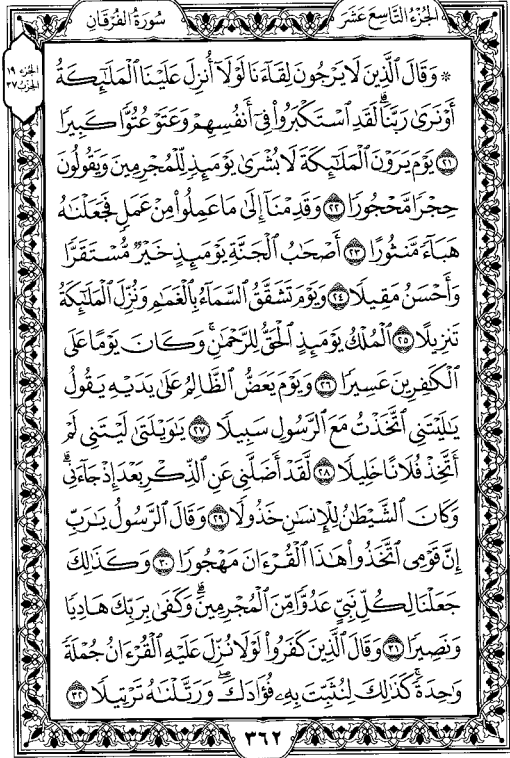 الجزء التاسع عشر
سورة الفرقان
الجزء ١٩
الحزب ٣٧
۞ وَقَالَ ٱلَّذِينَ لَا يَرْجُونَ لِقَآءَنَا لَوْلَآ أُنزِلَ عَلَيْنَا ٱلْمَلَـٰٓئِكَةُ
أَوْ نَرَىٰ رَبَّنَا ۗ لَقَدِ ٱسْتَكْبَرُوا۟ فِىٓ أَنفُسِهِمْ وَعَتَوْ عُتُوًّا كَبِيرًا
٢١ يَوْمَ يَرَوْنَ ٱلْمَلَـٰٓئِكَةَ لَا بُشْرَىٰ يَوْمَئِذٍ لِّلْمُجْرِمِينَ وَيَقُولُونَ
حِجْرًا مَّحْجُورًا ٢٢ وَقَدِمْنَآ إِلَىٰ مَا عَمِلُوا۟ مِنْ عَمَلٍ فَجَعَلْنَـٰهُ
هَبَآءً مَّنثُورًا ٢٣ أَصْحَـٰبُ ٱلْجَنَّةِ يَوْمَئِذٍ خَيْرٌ مُّسْتَقَرًّا
وَأَحْسَنُ مَقِيلًا ٢٤ وَيَوْمَ تَشَقَّقُ ٱلسَّمَآءُ بِٱلْغَمَـٰمِ وَنُزِّلَ ٱلْمَلَـٰٓئِكَةُ
تَنزِيلًا ٢٥ ٱلْمُلْكُ يَوْمَئِذٍ ٱلْحَقُّ لِلرَّحْمَـٰنِ ۚ وَكَانَ يَوْمًا عَلَى
ٱلْكَـٰفِرِينَ عَسِيرًا ٢٦ وَيَوْمَ يَعَضُّ ٱلظَّالِمُ عَلَىٰ يَدَيْهِ يَقُولُ
يَـٰلَيْتَنِى ٱتَّخَذْتُ مَعَ ٱلرَّسُولِ سَبِيلًا ٢٧ يَـٰوَيْلَتَىٰ لَيْتَنِى لَمْ
أَتَّخِذْ فُلَانًا خَلِيلًا ٢٨ لَّقَدْ أَضَلَّنِى عَنِ ٱلذِّكْرِ بَعْدَ إِذْ جَآءَنِى ۗ
وَكَانَ ٱلشَّيْطَـٰنُ لِلْإِنسَـٰنِ خَذُولًا ٢٩ وَقَالَ ٱلرَّسُولُ يَـٰرَبِّ
إِنَّ قَوْمِى ٱتَّخَذُوا۟ هَـٰذَا ٱلْقُرْءَانَ مَهْجُورًا ٣٠ وَكَذَٰلِكَ
جَعَلْنَا لِكُلِّ نَبِىٍّ عَدُوًّا مِّنَ ٱلْمُجْرِمِينَ ۗ وَكَفَىٰ بِرَبِّكَ هَادِيًا
وَنَصِيرًا ٣١ وَقَالَ ٱلَّذِينَ كَفَرُوا۟ لَوْلَا نُزِّلَ عَلَيْهِ ٱلْقُرْءَانُ جُمْلَةً
وَٰحِدَةً ۚ كَذَٰلِكَ لِنُثَبِّتَ بِهِۦ فُؤَادَكَ ۖ وَرَتَّلْنَـٰهُ تَرْتِيلًا ٣٢
٣٦٢